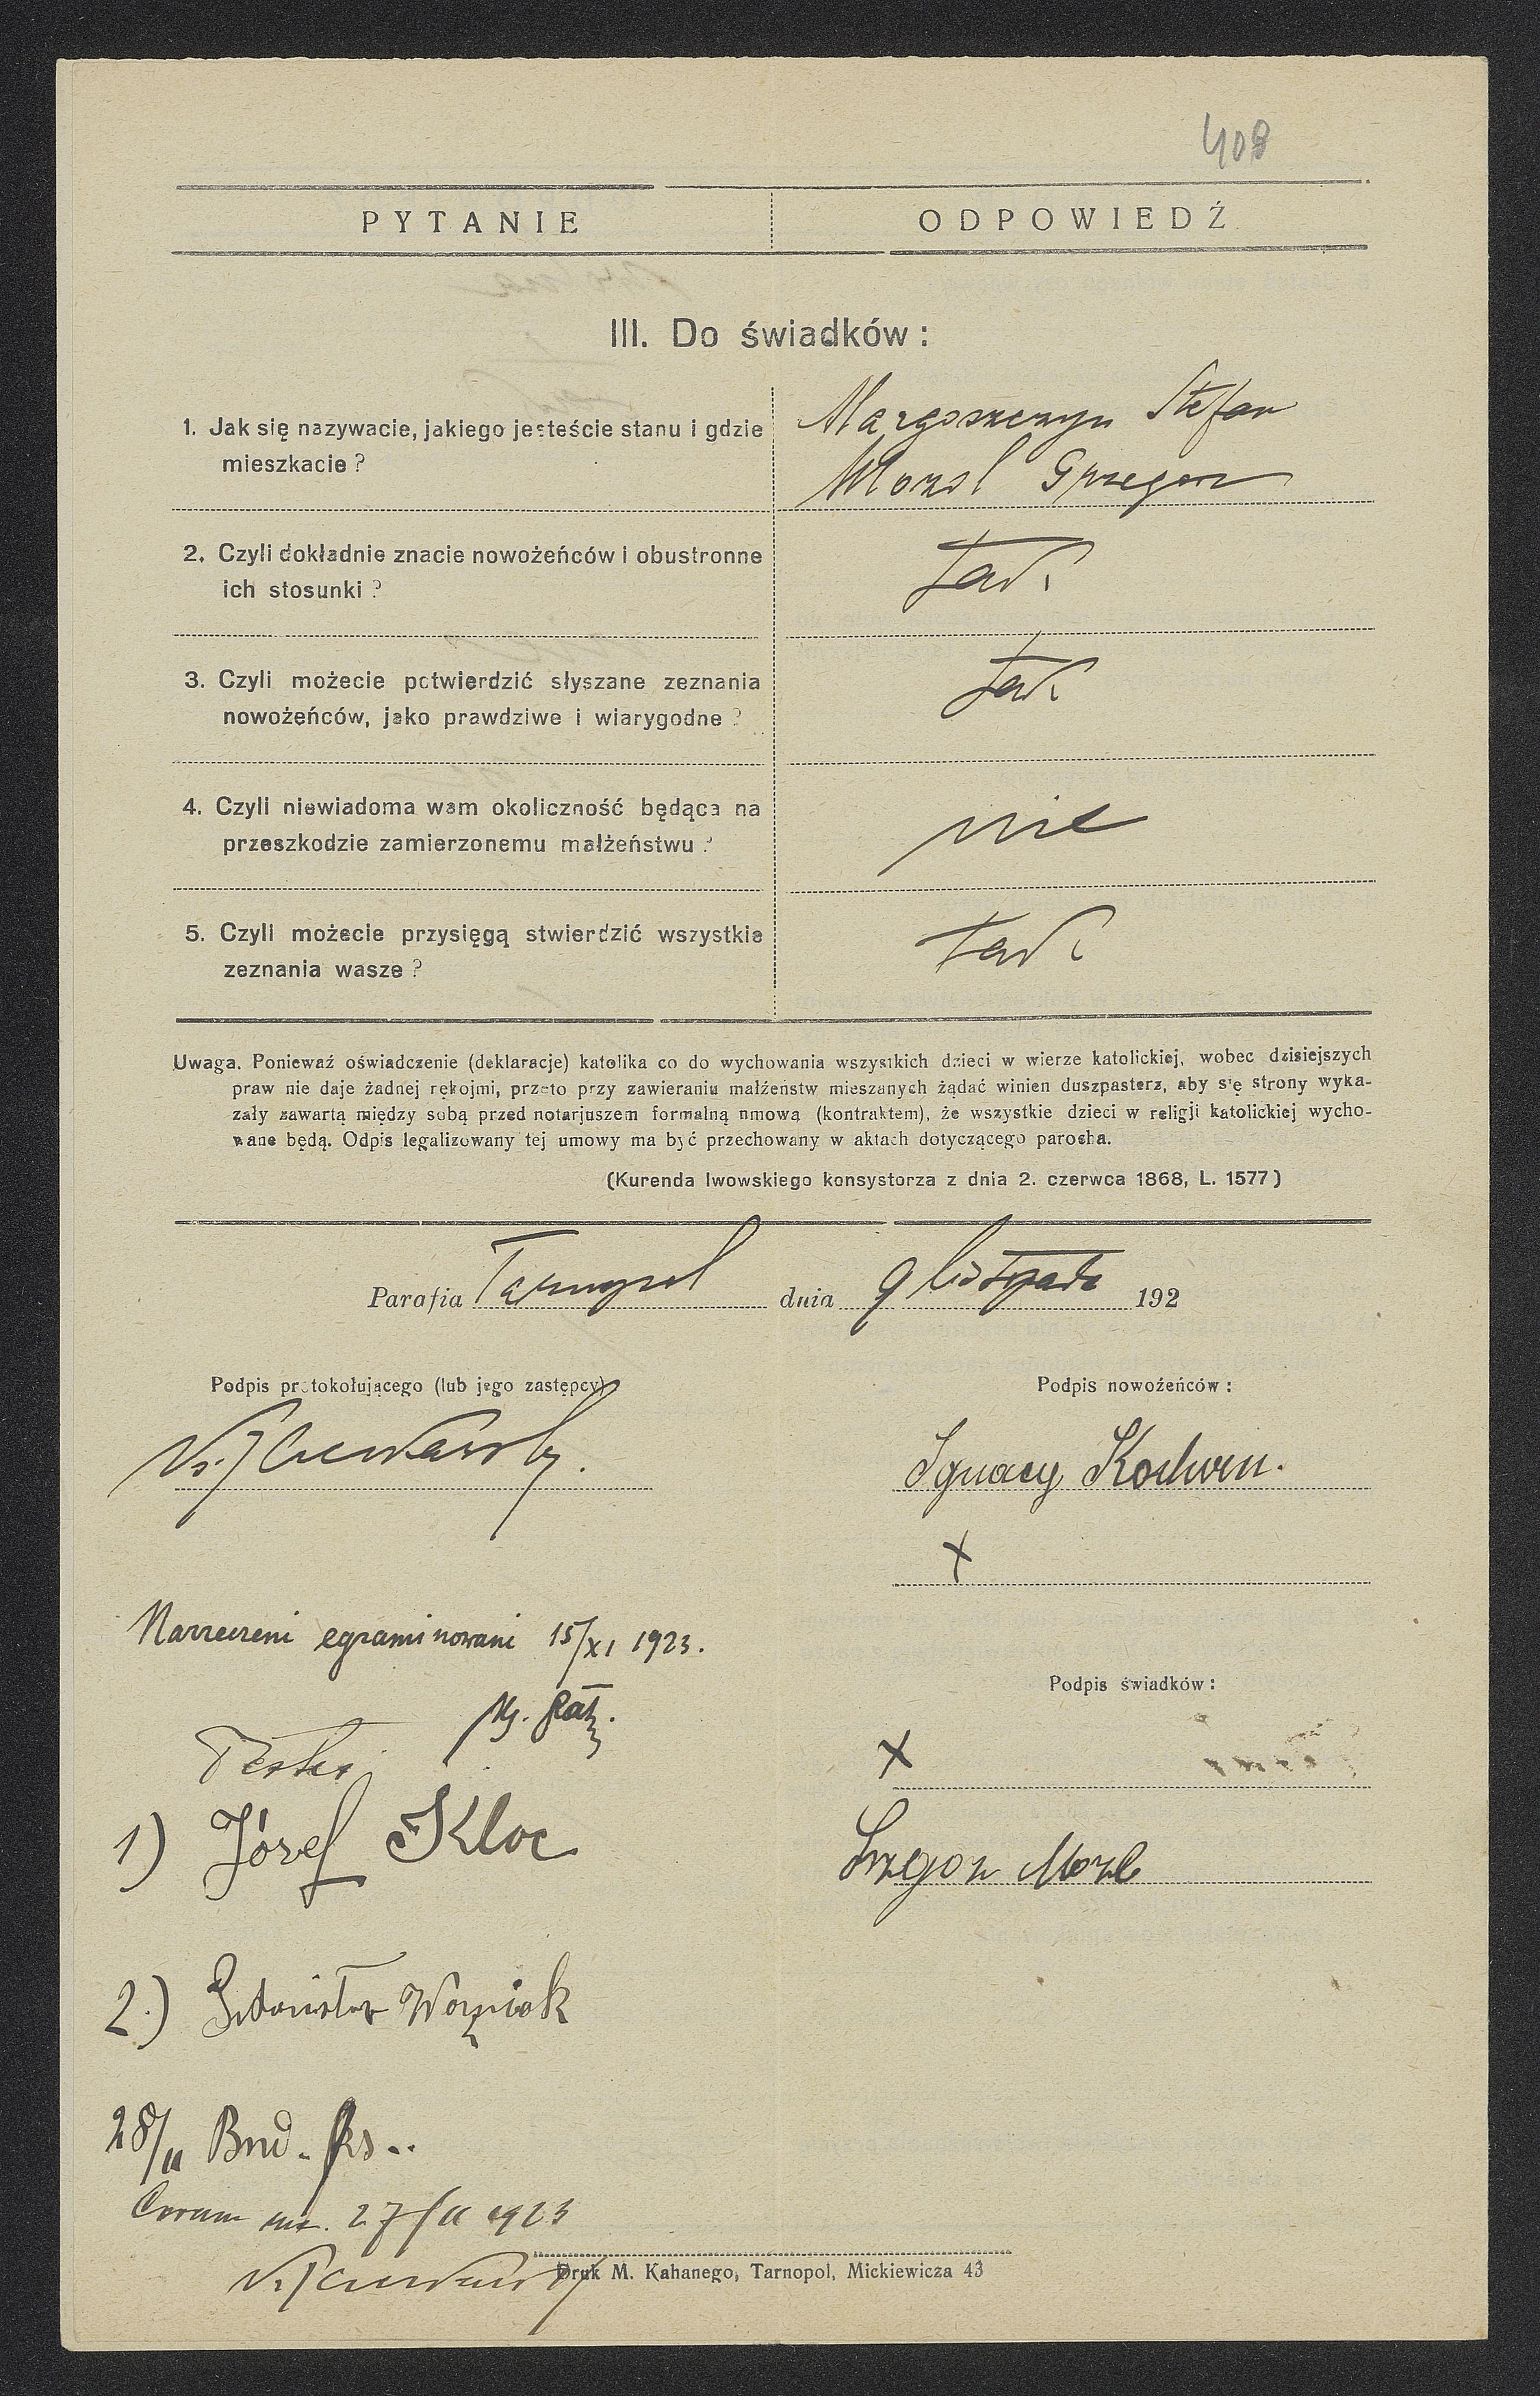 408
PYTANIE ODPOWIEDŹ
III. Do świadków:
1. Jak się nazywacie, jakiego jesteście stanu i gdzie
mieszkacie?
Stefan
Grzegorz
2. Czyli dokładnie znacie nowożeńców i obustronne
ich stosunki?
Tak.
3. Czyli możecie potwierdzić słyszane zeznania
nowożeńców, jako prawdziwe i wiarygodne?
Tak.
4. Czyli niewiadoma wam okoliczność będąca na
przeszkodzie zamierzonemu małżeństwu?
nie
5. Czyli możecie przysięgą stwierdzić wszystkie
zeznania wasze?
tak.
Uwaga. Ponieważ oświadczenie (deklaracje) katolika co do wychowania wszystkich dzieci w wierze katolickiej, wobec dzisiejszych
praw nie daje żadnej rękojmi, przeto przy zawieraniu małżeństw mieszanych żądać winien duszpasterz, aby się strony wyka-
zały zawartą między sobą przed notarjuszem formalną nmową (kontraktem), że wszystkie dzieci w religji katolickiej wycho-
wane będą. Odpis legalizowany tej umowy ma być przechowany w aktach dotyczącego parocha.
(Kurenda lwowskiego konsystorza z dnia 2. czerwca 1868, L. 1577)
Parafia Tarnopol dnia 9 listopada 192
Podpis protokołującego (lub jego zastępcy)
Podpis nowożeńców:
Ignacy
X
Narzeczeni egzaminowani 15/XI 1923.
Podpis świadków:
X
Testes
1) Józef Kloc
2.) Stanisław Woźniak
28/11
Coram me. 27/11 1923
Druk M. Kahanego, Tarnopol, Mickiewicza 43